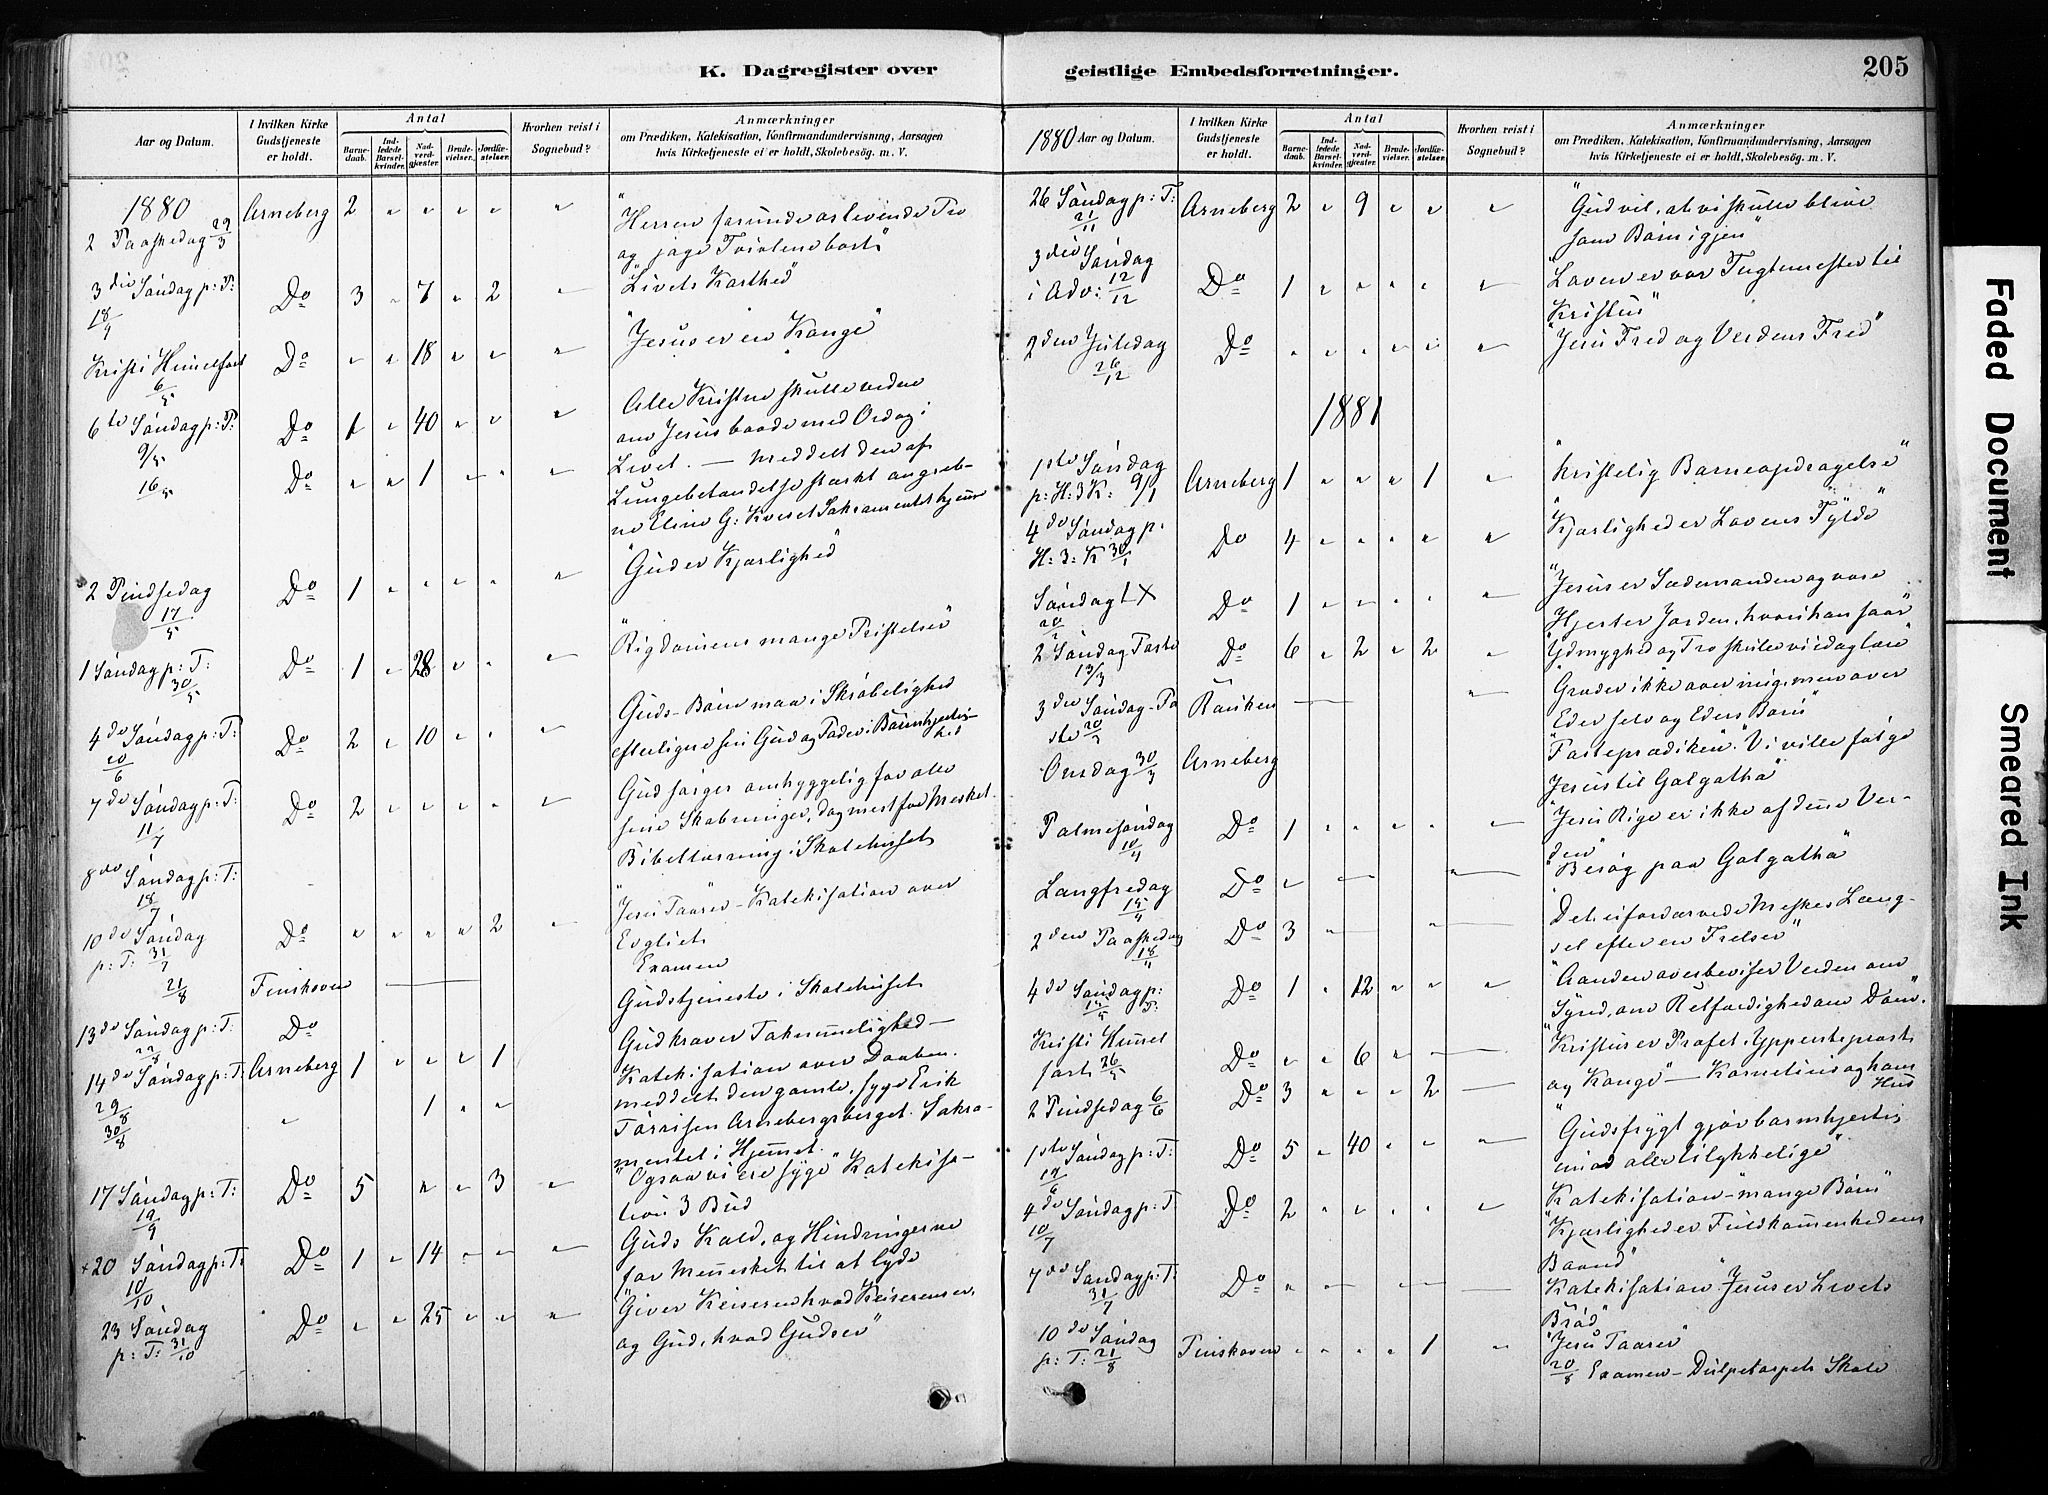 K. Dagregister over geistlige Embedsforretninger.
205
Aar og Datum.
I hvilken Kirke Gudstjeneste er holdt.
Antal
Barnedaab.
Indledede Barselkvinder.
Nadverdgjester.
Brudevielser.
Jordfæstelser.
Hvorhen reist i Sognebud?
Anmærkninger
om Prædiken, Katekisation, Konfirmandundervisning, Aarsagen
hvis Kirketjeneste ei er holdt, Skolebesög. m. V.
1880
2 Paaskedag 29/3 Arneberg 2 " " " " "
og jage Tvivlene bort"
3die Søndag p: P: 18/4 Do 3 " 7 " 2 " "Livets Korthed"
Kristi Himelfart 6/5 Do " " 18 " " " "Jesus er en Konge"
6te Søndag p: P: 9/5 Do 1 " 40 " " " Alle Kristne skulle vidne
om Jesus baade med Ord og i
Livet. — meddelt den af
16/5 Do " " 1 " " " Lungebetændelse stærkt angreb-
ne Eline G: Kveset Sakramentet hjemme
2 Pindsedag 17/5 Do 1 " " " " " "Gud er Kjærlighed"
1 Søndag p: T: 30/5 Do 1 " 28 " " " "Rigdomens mange Fristelser"
4de Søndag p: T: 20/6 Do 2 " 10 " " " Guds Børn maa i Skrøbelighed
efterligne sin Gud og Fader i Barmhjertig-
hed
7de Søndag p: T: 11/7 Do 2 " " " " " Gud sørger omhyggelig for alle
sine Skabninger, dog mest for Mesket.
8de Søndag p: T: 18/7 Bibellæsning i Skolehuset
10de Søndag p: T: 31/7 Do " " " " 2 " "Jesu Taarer" - Katekisation over
Evgliet
21/8 Finskoven Examen
13de Søndag p: T: 22/8 Do Gudstjeneste i Skolehuset
14de Søndag p: T. 29/8 Arneberg 1 " " " 1 Gud kræver Taknemmelighed —
Katekisation over Daaben.
30/8 " 1 " " meddelt den gamle, syge Erik
Tørrisen Arnebergsberget Sakra-
mentet i Hjemmet.
17 Søndag p: T: 19/9 Do 5 " " 3 " "Ogsaa vi ere syge" Katekisa-
tion 3 Bud
+20 Søndag p: T: 10/10 Do 1 " 14 " " " Guds Kald, og Hindringerne
for Mennesket til at lyde
23 Søndag p: T: 31/10 Do " " 25 " " " "Giver Keiseren hvad Keiserens er,
og Gud, hvad Guds er"
1880 Aar og Datum.
I hvilken Kirke Gudstjeneste er holdt.
Antal
Barnedaab.
Indledede Barselkvinder.
Nadverdgjester.
Brudevielser.
Jordfæstelser.
Hvorhen reist i Sognebud?
Anmærkninger
om Prædiken, Katekisation, Konfirmandundervisning, Aarsagen
hvis Kirketjeneste ei er holdt, Skolebesög. m. V.
26 Søndag p: T: 21/11 Arneberg 2 " 9 " " " "Gud vil, at vi skulle blive
som Børn igjen"
3die Søndag i Adv: 12/12 Do 1 " " " " " "Loven er vor Tugtemester til
Kristus"
2den Juledag 26/12 Do " " " " " " "Jesu Fred og Verdens Fred"
1881
1ste Søndag p: H: 3 K: 9/1 Arneberg 1 " " " 1 " "Kristelig Barneopdragelse"
4de Søndag p. H: 3: K 30/1 Do 4 " " " " " "Kjærlighed er Lovens Fylde"
Søndag LX 20/2 Do 1 " " " " " "Jesus er Sædemanden og vore
Hjerter Jorden, hvori han saar"
2 Søndag Faste 13/3 Do 6 " 2 " 2 " "Ydmyghed og Tro skulle vi idag lære"
3die Søndag Fa-
ste 20/3 "Græder ikke over mig, men over
Eder selv og Eders Børn"
Onsdag 30/3 Arneberg "Fasteprædiken". "Vi ville følge
Jesus til Golgatha"
Palmesøndag 10/4 Do 1 " " " " " "Jesu Rige er ikke af denne Ver-
den"
Langfredag 15/4 Do " "Besøg paa Golgatha"
2den Paaskedag 18/4 Do 3 " " Det ufordærvede Meskes Læng-
sel efter en Frelser"
4de Søndag p: P: 15/5 Do 1 " 12 " " " "Aanden overbeviser Verden om
Synd, om Retfærdighed om Dom".
Kristi Himmel
fart 26/5 Do " " 6 " "Kristus er Profet, Ypperstepræst
og Konge" — Kornelius og hans
Hus
2 Pindsedag 6/6 Do 3 " " " 2
1ste Søndag p: T: Do 5 " 40 " " " "Gudsfrygt gjør barmhjertig
mod alle ulykkelige"
4de Søndag p: T 10/7 Do 2 " " " " " Katekisation - mange Børn
"Kjærlighed er Fuldkommenhedens
Baand"
7de Søndag p: T: 31/7 Do " Katekisation "Jesus er Livets
Brød"
10de Søndag p: T: 21/8 Finskoven " " " " 1 " "Jesu Taarer"
20/8 Examen - Dulpetorpets Skole
Faded Document
Smeared Ink